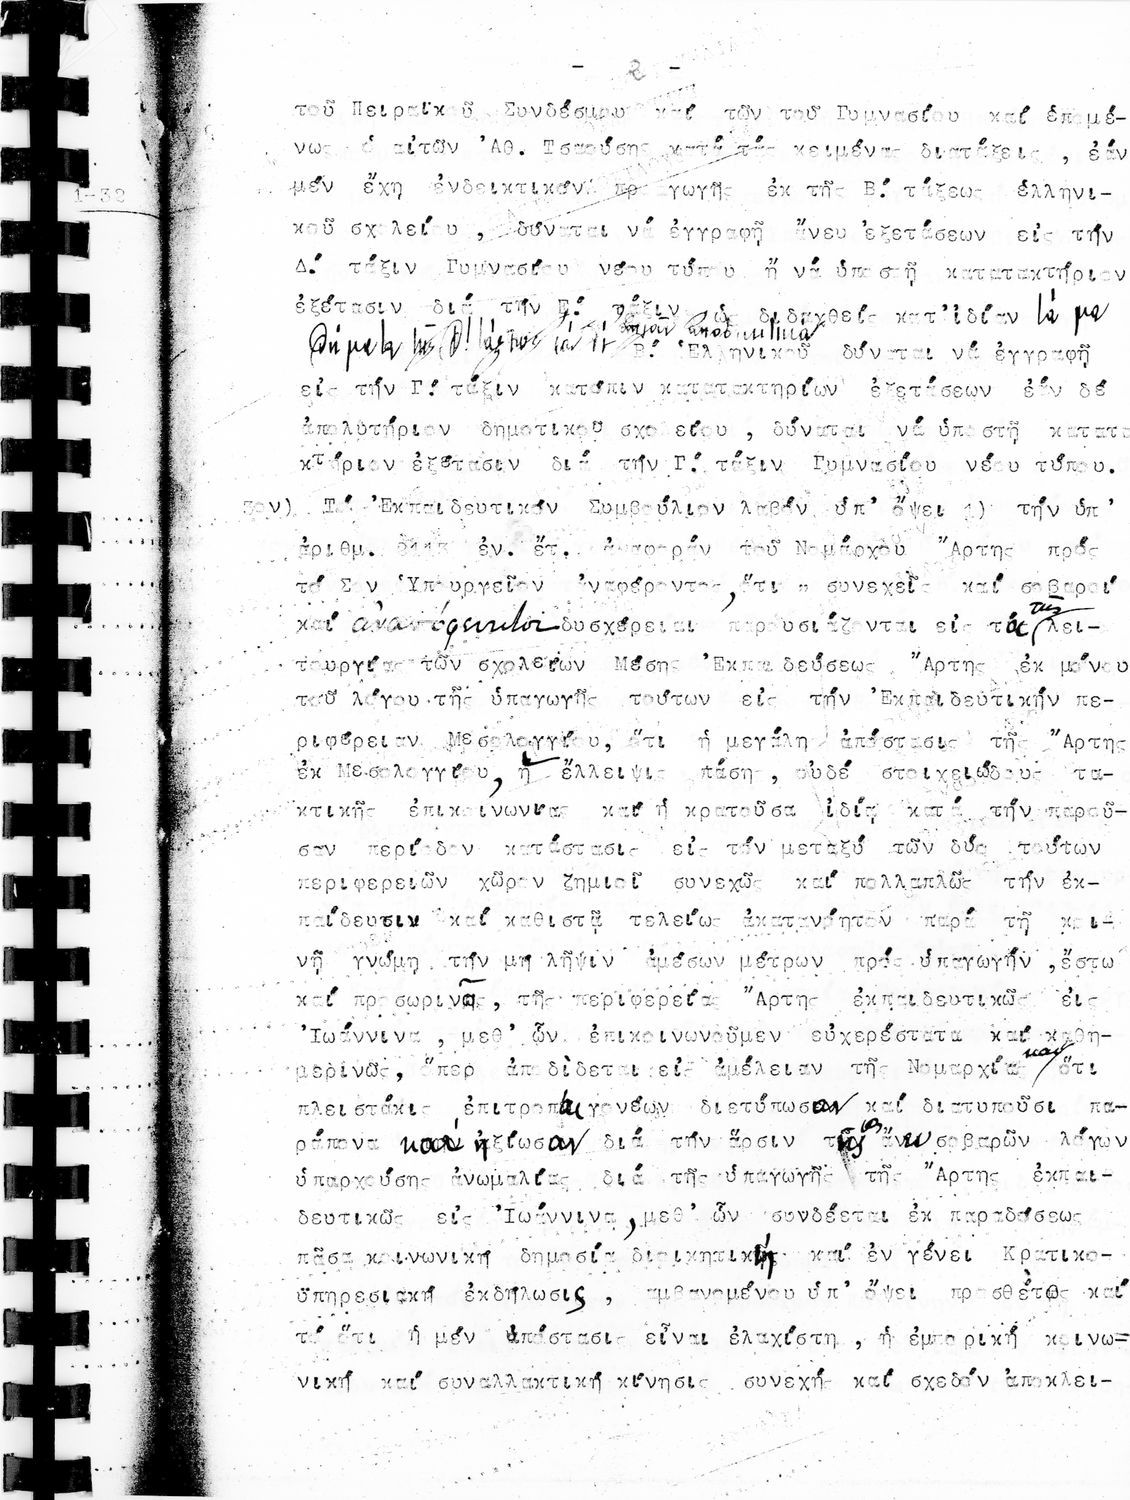 - 2 -
τοῦ Πειραϊκοῦ Συνδέσμου καί τῶν τοῦ Γυμνασίου καί ἑπομέ-
νως ὁ αἰτῶν 'Αθ. Τσαούσης κατά τάς κειμένας διατάξεις , ἐάν
1-32
μέν ἔχη ἐνδεικτικόν προαγωγῆς ἐκ τῆς Β! τάξεως ἑλληνι-
κοῦ σχολείου , δύναται νά ἐγγραφῆ ἄνευ ἐξετάσεων εἰς τήν
Δ! τάξιν Γυμνασίου νέου τύπου ἤ νά ὑποστῆ κατατακτήριον
ἐξέτασιν διά τήν Ε! τάξιν ὡς διδαχθείς κατ'ἰδίαν τά μα
θήματα τῆς Δ! τάξεως ἐάν δέ ἔχη ἐνδεικτικόν Β! Ἑλληνικοῦ δύναται νά ἐγγραφῆ
εἰς τήν Γ! τάξιν κατόπιν κατατακτηρίων ἐξετάσεων ἐάν δέ
ἀπολυτήριον δημοτικοῦ σχολείου , δύναται νά ὑποστῆ κατατα
κτήριον ἐξέτασιν διά τήν Γ! τάξιν Γυμνασίου νέου τύπου.
3ον) Τό Ἐκπαιδευτικόν Συμβούλιον λαβόν ὑπ' ὄψει 1) τήν ὑπ'
ἀριθμ. ἐν. ἔτ. ἀναφοράν τοῦ Νομάρχου Ἄρτης πρός
τό Σον Ὑπουργεῖον ἀναφέροντος, ὅτι " συνεχεῖς καί σοβαραί
καί ἀνανπόφευκτοι δυσχέρειαι παρουσιάζονται εἰς τάς τῆς λει-
τουργίας τῶν σχολείων Μέσης Ἐκπαιδεύσεως Ἄρτης ἐκ μόνου
τοῦ λόγου τῆς ὑπαγωγῆς τούτων εἰς τήν Ἐκπαιδευτικήν πε-
ριφέρειαν Μεσολογγίου, ὅτι ἡ μεγάλη ἀπόστασις τῆς Ἄρτης
ἐκ Μεσολογγίου, ἡ ἔλλειψις πάσης, οὐδέ στοιχειώδους τα-
κτικῆς ἐπικοινωνίας καί ἡ κρατοῦσα ἰδίᾳ κατά τήν παροῦ-
σαν περίοδον κατάστασις εἰς τόν μεταξύ τῶν δύο τούτων
περιφερειῶν χῶρον ζημιοῖ συνεχῶς καί πολλαπλῶς τήν ἐκ-
παίδευσιν καί καθιστᾷ τελείως ἀκατανόητον παρά τῇ κοι-
νῇ γνώμῃ τήν μή λῆψιν ἀμέσων μέτρων πρός ὑπαγωγήν ,ἔστω
καί προσωρινῶς, τῆς περιφερείας Ἄρτης ἐκπαιδευτικῶς εἰς
Ἰωάννινα , μεθ' ὧν ἐπικοινωνοῦμεν εὐχερέστατα καί καθη-
μερινῶς, ὅπερ ἀποδίδεται εἰς ἀμέλειαν τῆς Νομαρχίας καί ὅτι
πλειστάκις ἐπιτροπαί γονέων διετύπωσαν καί διατυποῦσι πα-
ράπονα καί ἠξίωσαν διά τήν ἄρσιν τῆς ἄνευ σοβαρῶν λόγων
ὑπαρχούσης ἀνωμαλίας διά τῆς ὑπαγωγῆς τῆς Ἄρτης ἐκπαι-
δευτικῶς εἰς Ἰωάννινα, μεθ' ὧν συνδέεται ἐκ παραδόσεως
πᾶσα κοινωνική δημοσία διοικητική καί ἐν γένει Κρατικο-
υπηρεσιακή ἐκδήλωσις , λαμβανομένου ὑπ' ὄψει προσθέτως καί
τό ὅτι ἡ μέν ἀπόστασις εἶναι ἐλαχίστη , ἡ ἐμπορική κοινω=
νική καί συναλλακτική κίνησις συνεχής καί σχεδόν ἀποκλει-